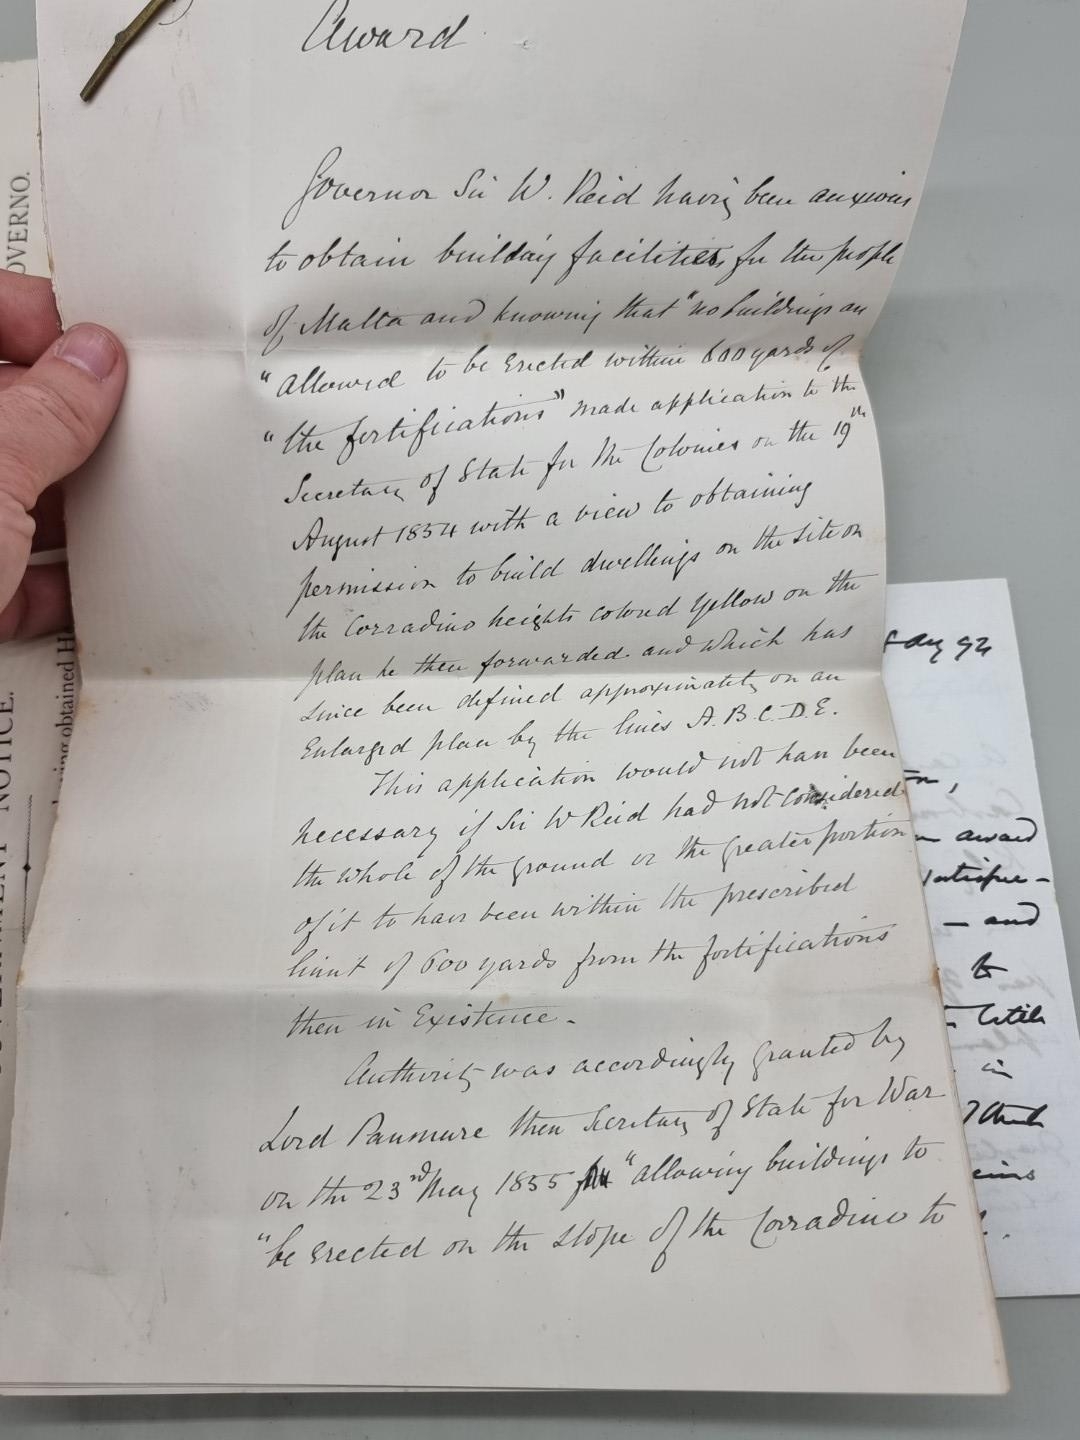 Award
Governor Sir W. Reid having been anxious
to obtain building facilities, for the people
of Malta and knowing that "no buildings are
"allowed to be Erected within 600 yards of
"the fortifications" made application to the
Secretary of State for the Colonies on the 19th
August 1854 with a view to obtaining
permission to build dwellings on the site on
the Corradino heights colored Yellow on the
plan he then forwarded and which has
since been defined approximately on an
Enlarged plan by the lines A. B. C. D. E.
This application would not have been
necessary if Sir W Reid had not considered
the whole of the ground or the greater portion
of it to have been within the prescribed
limit of 600 yards from the fortifications
then in Existence -
Authority was accordingly granted by
Lord Panmure then Secretary of State for War
on the 23rd May 1855 for "allowing buildings to
"be Erected on the slope of the Corradino to
OVERNO.
NOTICE.
having obtained H
92
award
satisfac-
- and
to
in